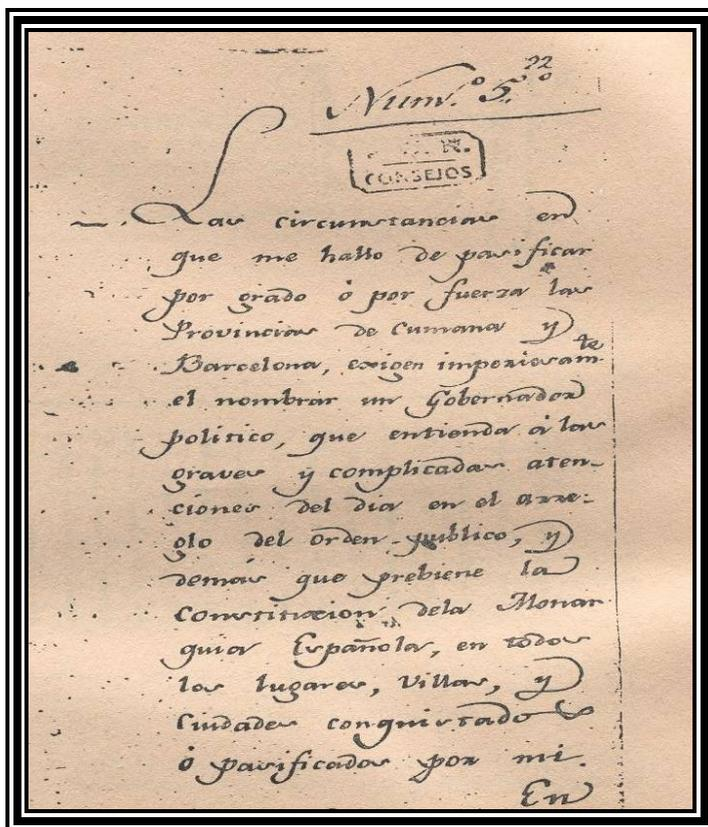 22
Num.º 5.º
CONSEJOS
Las circunstancias en
que me hallo de pasificar
por grado ó por fuerza las
Provincias de Cumana y
Barcelona, exigen imperiosam.te
el nombrar un Gobernador
politico, que entienda á las
graves y complicadas aten-
ciones del dia en el arre-
glo del orden publico, y
demás que prebiene la
Constitucion dela Monar
quia Española, en todos
los lugares, Villas, y
Ciudades conquistados
ó pasificados por mi.
En